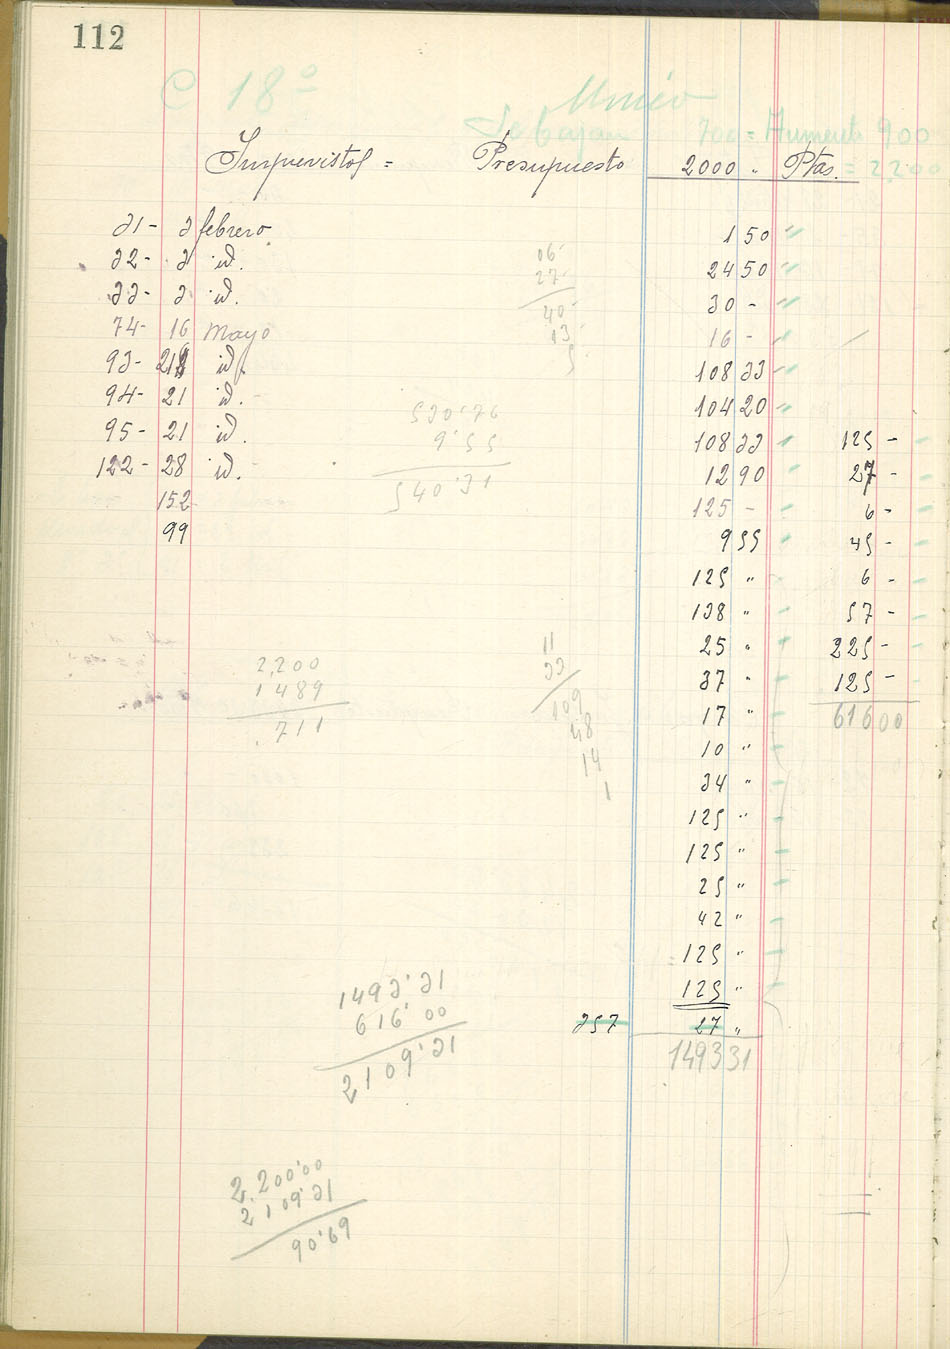 112
C 18º Unico
Se bajan 700 = Aumento 900
Imprevistos = Presupuesto 2000 " Ptas. = 2,200
31- 3 febrero 1 50 "
32- 3 id. 06 24 50 "
33- 3 id. 27 30 - "
40
74- 16 Mayo 13 16 - "
93- 21 id. 5 108 33 "
94- 21 id. 104 20 "
530'76
95- 21 id. 9'55 108 33 " 125 -
122- 28 id. 12 90 27 -
540'31
152 125 - 6 -
99 9 55 45 -
125 " 6 -
138 " 57 -
11 25 " 225 -
2,200 33
1489 37 " 125 -
711 109 17 " 616 00
48 10 "
14
1 34 "
125 "
125 "
25 "
42 "
125 "
1493'31 125 "
616'00 357 27 "
2109'31 1493 31
2,200'00
2109'31
90'69